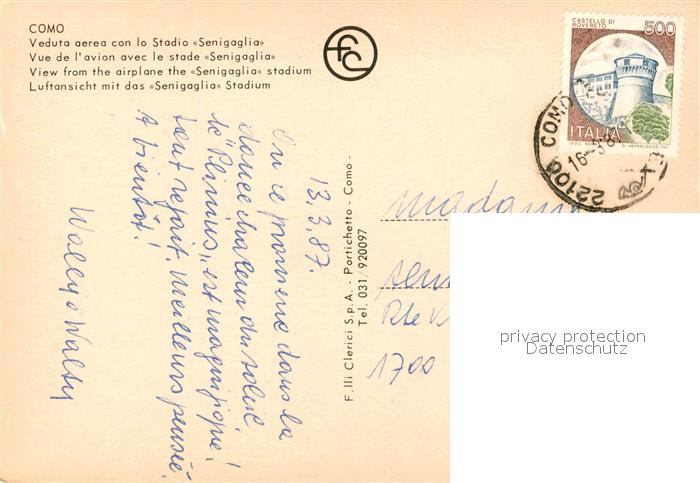 COMO
Veduta aerea con lo Stadio «Senigaglia»
Vue de l'avion avec le stade «Senigaglia»
View from the airplane the «Senigaglia» stadium
Luftansicht mit das «Senigaglia» Stadium
CASTELLO DI
ROVERETO
500
ITALIA
22100 COMO
16-3
13.3.87.
On se promène dans la
douce chaleur du soleil.
le "Plinius" est magnifique!
tout rejouit. Meilleurs pensée
A bientôt!
Wally + Walty
F.lli Clerici S.p.A. - Portichetto - Como -
Tel. 031/920097
Madame
Rte
1700
privacy protection
Datenschutz